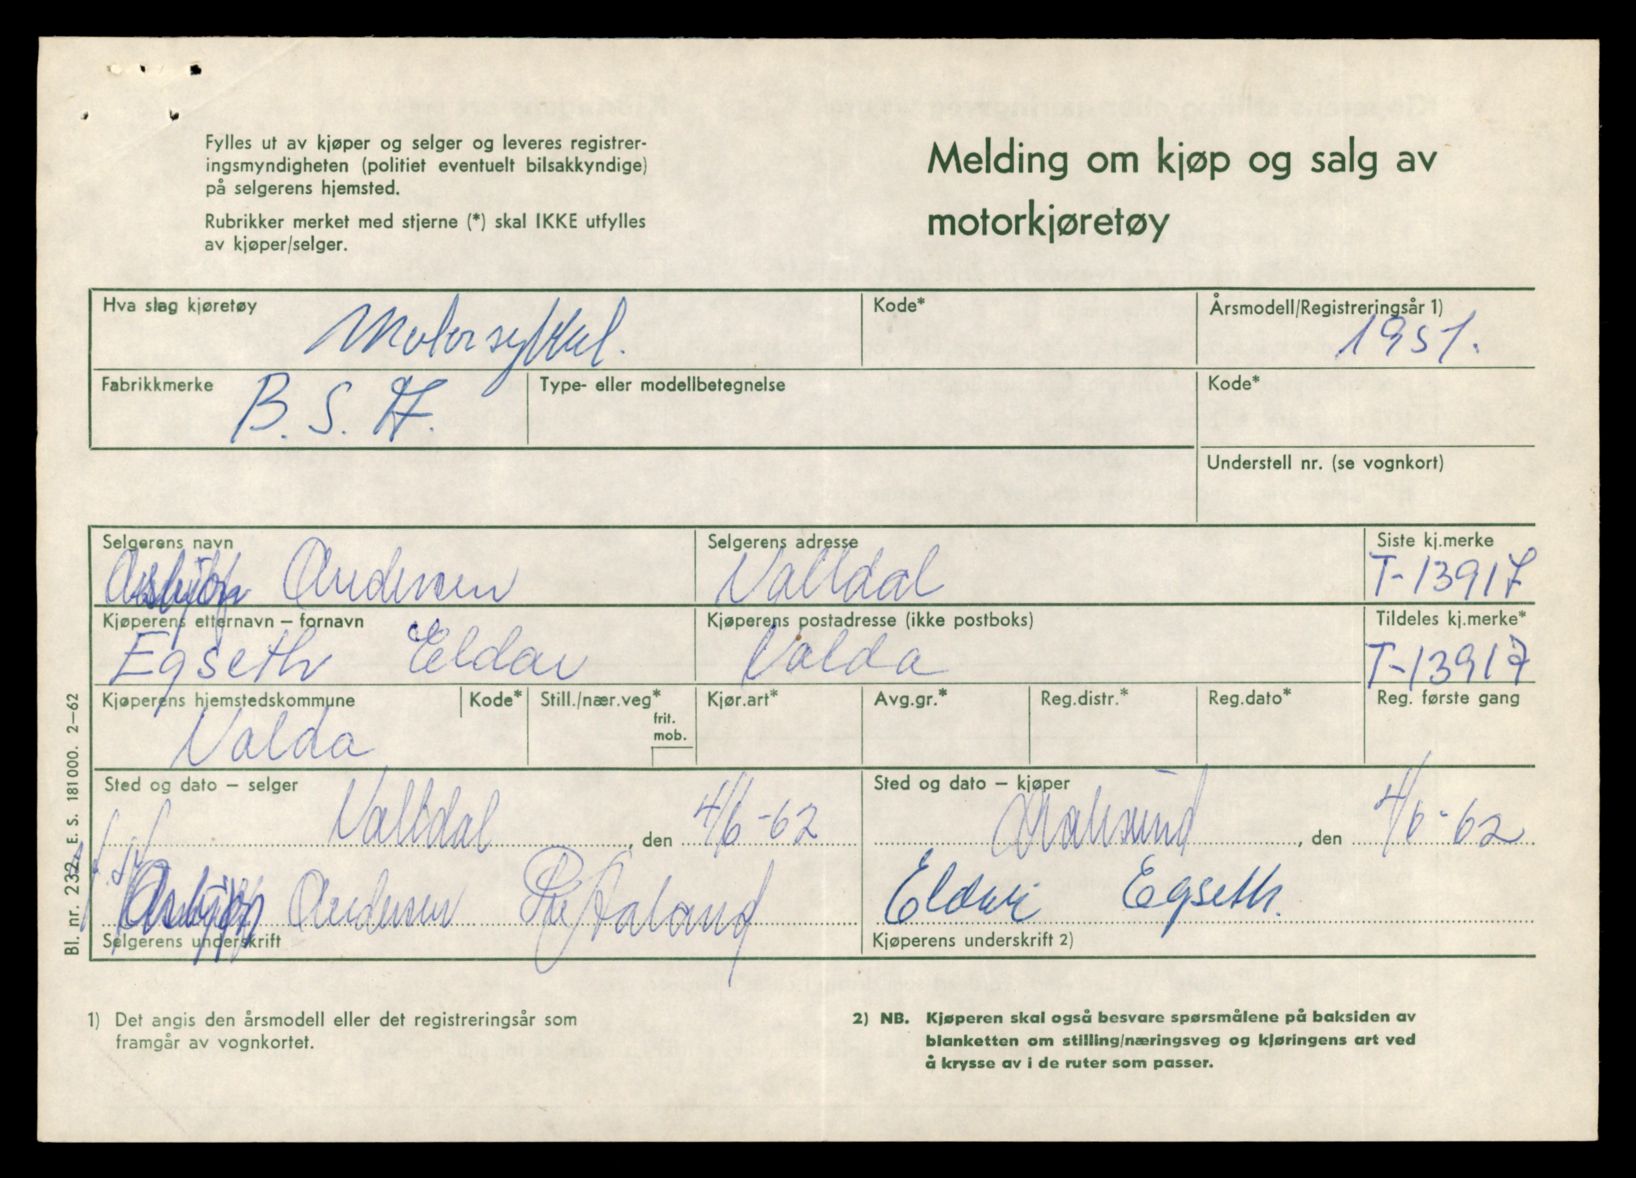 Fylles ut av kjøper og selger og leveres registrer-
ingsmyndigheten (politiet eventuelt bilsakkyndige)
på selgerens hjemsted.
Rubrikker merket med stjerne (*) skal IKKE utfylles
av kjøper/selger.
Melding om kjøp og salg av
motorkjøretøy
Hva slag kjøretøy
Motorsykkel.
Kode*
Årsmodell/Registreringsår 1)
1951.
Fabrikkmerke
B. S. A.
Type- eller modellbetegnelse
Kode*
Understell nr. (se vognkort)
Selgerens navn
Asbjørn Andersen
Selgerens adresse
Valldal
Siste kj.merke
T-13917
Kjøperens etternavn – fornavn
Egseth Eldar
Kjøperens postadresse (ikke postboks)
Valda
Tildeles kj.merke*
T-13917
Kjøperens hjemstedskommune
Valda
Kode*
Still./nær.veg*
frit.
mob.
Kjør.art*
Avg.gr.*
Reg.distr.*
Reg.dato*
Reg. første gang
Sted og dato – selger
Valldal, den 4/6-62
Sted og dato – kjøper
, den 4/6-62
Asbjørn Andersen
Selgerens underskrift
Eldar Egseth.
Kjøperens underskrift 2)
Bl. nr. 232. E. S. 181000. 2–62
1) Det angis den årsmodell eller det registreringsår som
framgår av vognkortet.
2) NB. Kjøperen skal også besvare spørsmålene på baksiden av
blanketten om stilling/næringsveg og kjøringens art ved
å krysse av i de ruter som passer.